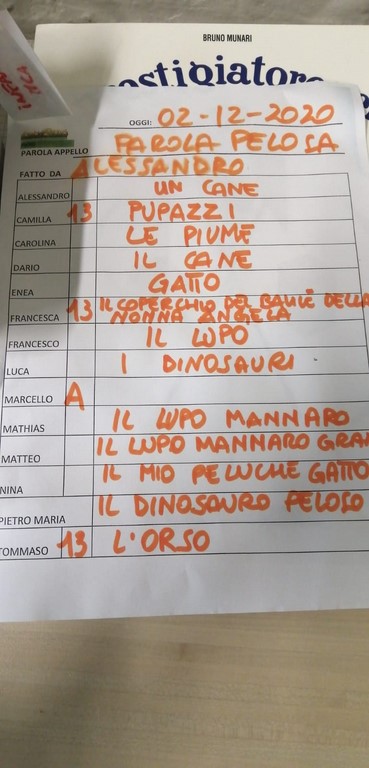 BRUNO MUNARI
ostigiatore
OGGI: 02-12-2020
PAROLA APPELLO PAROLA PELOSA
FATTO DA ALESSANDRO
ALESSANDRO UN CANE
CAMILLA 13 PUPAZZI
CAROLINA LE PIUME
DARIO IL CANE
ENEA GATTO
FRANCESCA 13 IL COPERCHIO DEL BAULE DELLA
NONNA ANGELA
FRANCESCO IL LUPO
LUCA I DINOSAURI
MARCELLO A
MATHIAS IL LUPO MANNARO
MATTEO IL LUPO MANNARO GRAN
NINA IL MIO PELUCHE GATTO
PIETRO MARIA IL DINOSAURO PELOSO
TOMMASO 13 L'ORSO